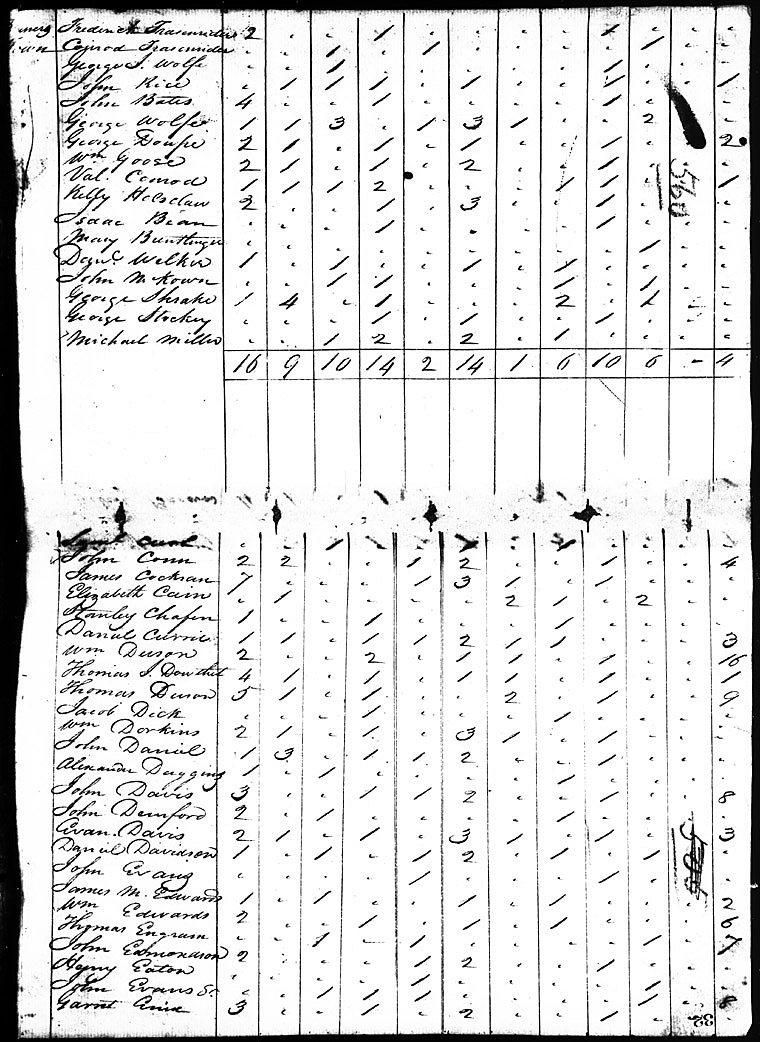 Frederick Trasenrider 2 . . 1 . . . . 1 . . .
Town Conrod Trasenrider . . . . 1 . . . . 1 . .
George J. Wolfe . . 1 . . . . . 1 . . .
John Rice . 1 1 1 . 1 . . 1 . . 1
John Bates 4 . . 1 . . . . 1 . . .
George Wolfe 1 1 3 . 1 3 1 . . 2 . .
George Doupe 2 1 . 1 . 1 . . 1 . . 2
Wm Goose 2 1 . 1 . 2 . . 1 . . .
Val. Conrod 1 1 1 2 . . . 1 1 . . 1
Kelly Holsclaw 2 . . 1 . 3 . . 1 . . .
Isaac Bean . . . 1 . . . . 1 . . .
Mary . . . . . . . . . 1 . .
Danl. Welker 1 . 1 . . 1 . 1 . . . .
John McKown . . 1 1 . . . 1 . 1 . .
George Shrake 1 4 . 1 . . . 2 . 1 . .
George Stockey . . . 1 . 1 . . 1 . . .
Michael Miller . . 1 2 . 2 . 1 . . . .
16 9 10 14 2 14 1 6 10 6 - 4
560
John Conn 2 2 . . 1 2 . . 1 . . 4
James Cockran 7 . . . 1 3 1 . 1 . . .
Elizabeth Cain . 1 . . . . 2 1 . 2 . .
Stanley Chafen 1 . . 1 . . . 1 . . . .
Daniel Currie 1 1 . 1 1 2 1 1 . . . 3
Wm Duson 2 . . 2 . 1 1 . 1 . . 16
Thomas J. Douthet 4 1 . 1 . 1 1 . 1 . . 1
Thomas Duson 5 1 . 1 . . 2 . 1 . . 9
Jacob Dick . . . 1 . . . 1 . . . .
Wm Dorkins 2 1 . . . 3 1 . 1 . . .
John Daniel 1 3 . 1 1 2 . . 1 . . .
Alexander Duggins 1 . 1 . . . . 1 . . . .
John Davis 3 . . 1 1 2 . . 1 . . 8
John Demford 2 . 1 . . . . 1 . . . .
Evan. Davis 2 1 . 1 . 3 1 . 1 . . 3
Daniel Davidson 1 . 1 . 1 2 . . 1 . . .
John Evans . . . . 1 . . . . 1 . .
James M. Edwards 1 . 1 . . 1 . 1 . . . 2
Wm Edwards 2 . . 1 . 1 . 1 . . . 6
Thomas Engram . . 1 . . . . . . 1 . 7
John Edmondson 2 . . . 1 2 . . 1 . . .
Henry Eaton . . . . 1 . . . . 1 . .
John Evans Sr. . . 1 1 1 . . . . 1 . .
Garnt 3 . . 1 . 2 . . 1 . . 8